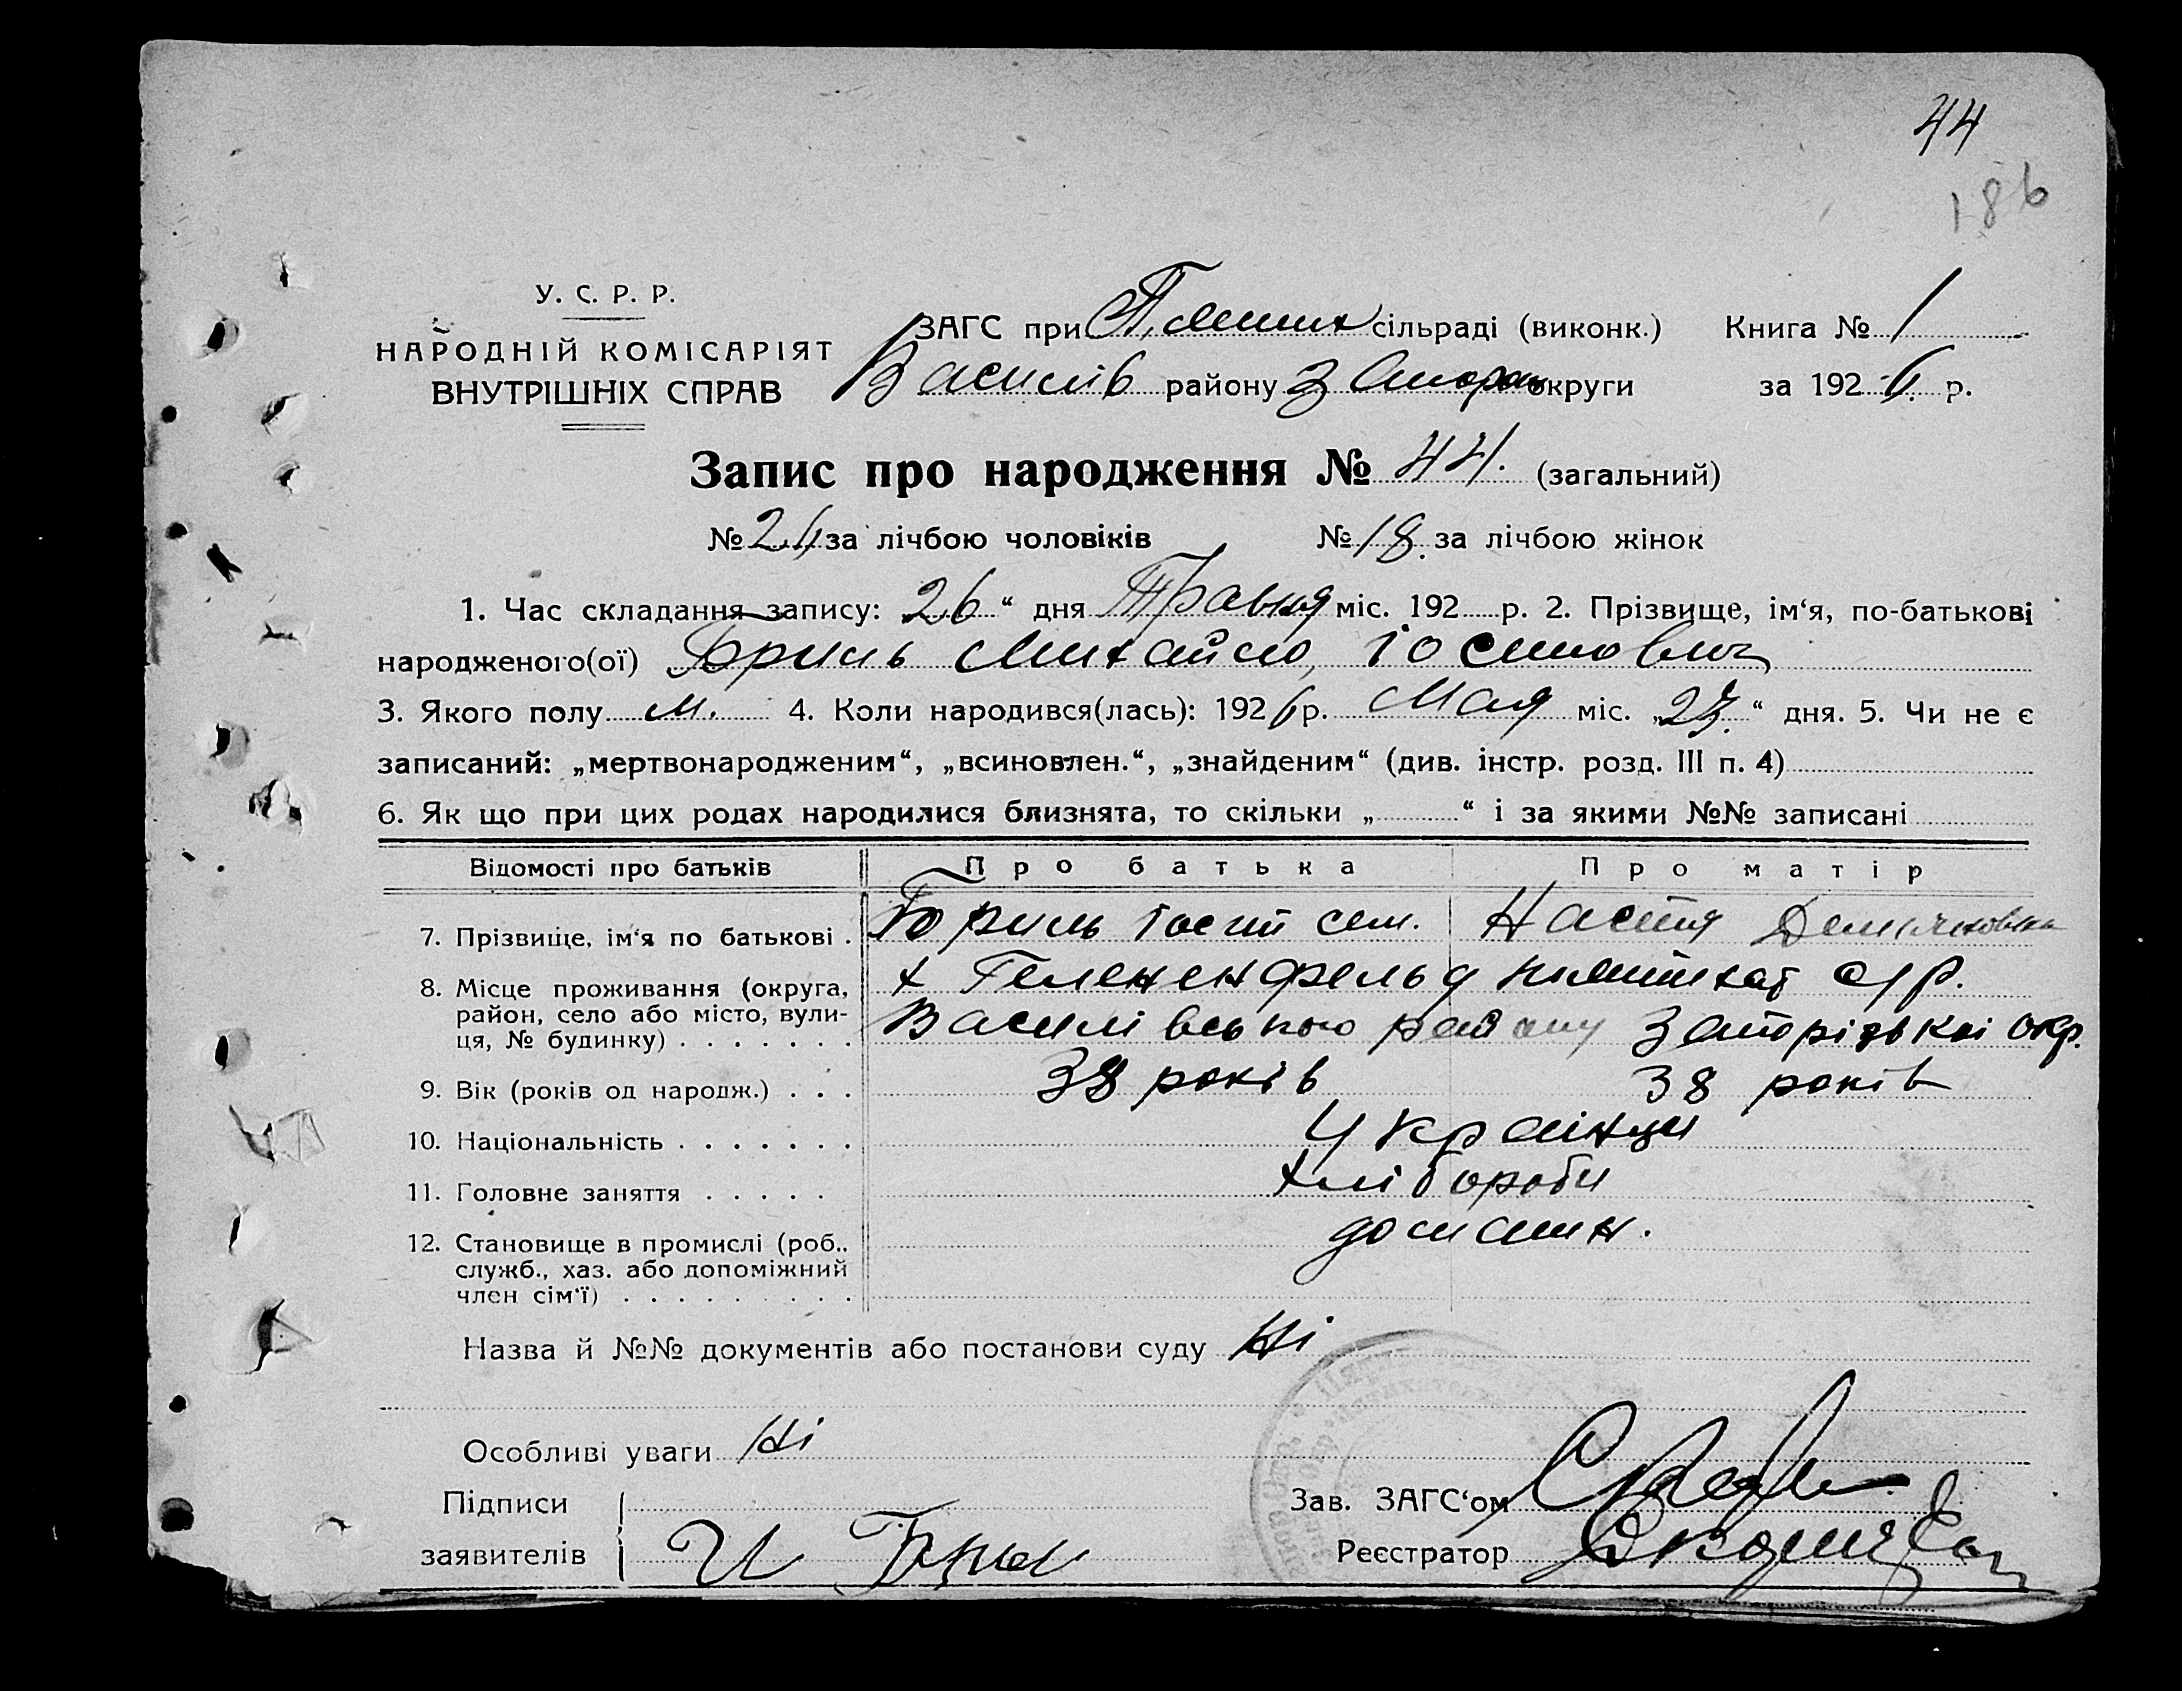 44
186
У. С. Р. Р.
НАРОДНІЙ КОМІСАРІЯТ
ВНУТРІШНІХ СПРАВ
ЗАГС при сільраді (виконк.) Книга № 1
Василів району Запорож округи за 1926 р.
Запис про народження № 44. (загальний)
№ 26 за лічбою чоловіків № 18. за лічбою жінок
1. Час складання запису: 26 “ дня Травня міс. 192 р. 2. Прізвище, ім‘я, по-батькові
народженого(ої) Бриль Михайло, Іосипович
3. Якого полу м. 4. Коли народився(лась): 1926 р. Мая міс. „23.“ дня. 5. Чи не є
записаний: „мертвонародженим“, „всиновлен.“, „знайденим“ (див. інстр. розд. III п. 4)
6. Як що при цих родах народилися близнята, то скільки „ “ і за якими №№ записані
Відомості про батьків Про батька Про матір
7. Прізвище, ім‘я по батькові . Бриль Іосип сем. Настя
8. Місце проживання (округа, х с/р.
район, село або місто, вули- Василівського району Запорізькоі окр.
ця, № будинку) . . . . . . .
9. Вік (років од народж.) . . . 38 років 38 років
10. Національність . . . . . . . Украінци
11. Головне заняття . . . . . хлібороби
12. Становище в промислі (роб.,
служб., хаз. або допоміжний
член сім‘ї) . . . . . . . . .
Назва й №№ документів або постанови суду Ні
Особливі уваги Ні
Підписи Зав. ЗАГС‘ом
заявителів И Брил Реєстратор